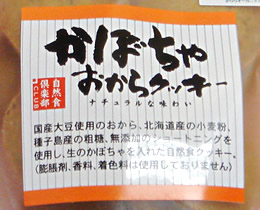 かぼちゃ
おからクッキー
ナチュラルな味わい
自然食
倶楽部
CLUB
国産大豆使用のおから、北海道産の小麦粉、
種子島産の粗糖、無添加のショートニングを
使用し、生のかぼちゃを入れた自然食クッキー。
(膨脹剤、香料、着色料は使用しておりません)